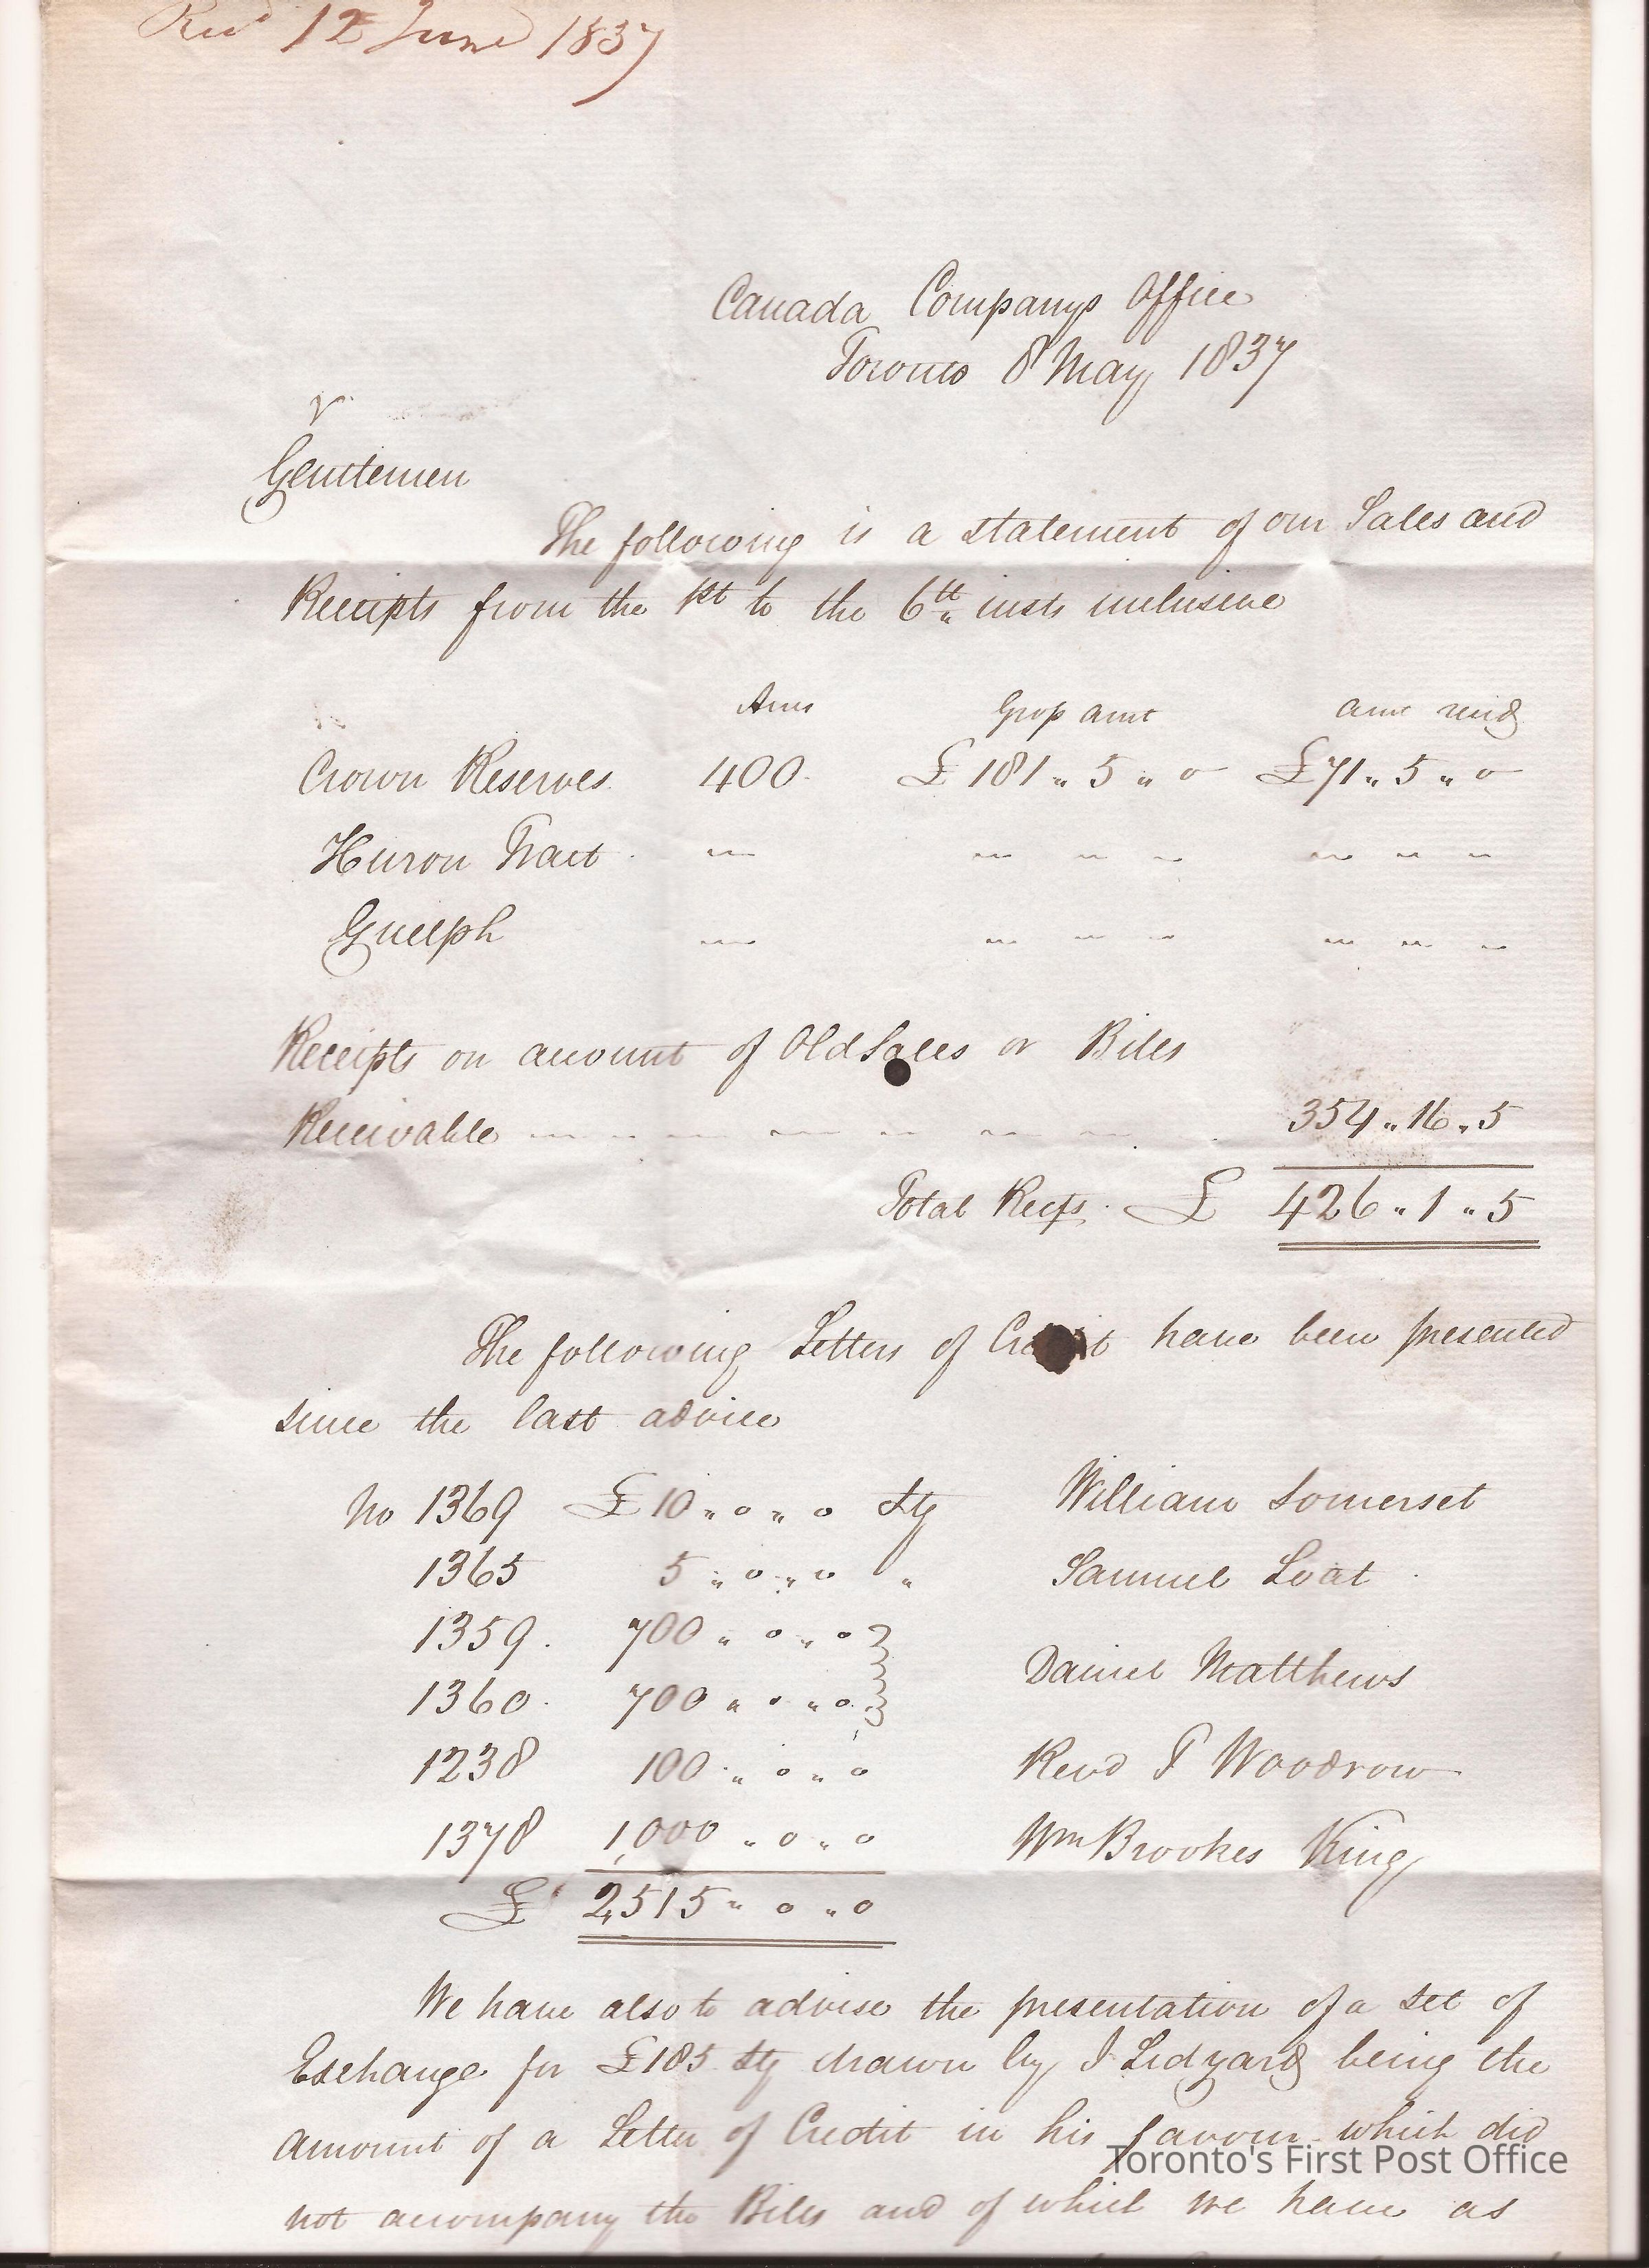 Recd 12 June 1837
Canada Companys Office
Toronto 8 May 1837
Gentlemen
The following is a statement of our Sales and
Receipts from the 1st to the 6th insts inclusive
Acres Gross amt amt recd
Crown Reserves 400 £181 " 5 " 0 £71 " 5 " 0
Huron Tract " " " " " " "
Guelph " " " " " " "
Receipts on account of Old Sales or Bills
Receivable 354 " 16 " 5
Total Recps. £ 426 " 1 " 5
The following Letters of Credit have been presented
since the last advice
No 1369 £10 " 0 " 0 Stg William Somerset
1365 5 " 0 " 0 " Samuel Loat
1359. 700 " 0 " 0
Daniel Matthews
1360. 700 " 0 " 0
1238 100 " 0 " 0 Revd T Woodrow
1378 1,000 " 0 " 0 Wm Brookes King
£ 2,515 " 0 " 0
We have also to advise the presentation of a set of
Exchange for £185 Stg drawn by J Lidyard being the
amount of a Letter of Credit in his favour which did
not accompany the Bills and of which we have as
Toronto's First Post Office